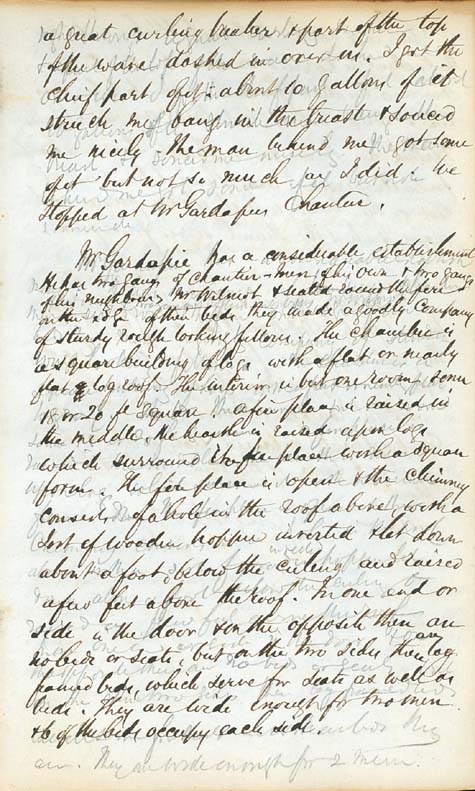 a great curling breaker & part of the top
of the wave dashed in over in. I got the
chief part of it: about 10 gallons of it
struck me bang in the breast & soused
me nicely. The man behind me got some
of it but not so much as I did. We
stopped at Mr Gardapees Chantier.
Mr Gardapie has a considerable establishment
He has two gangs of chantier men of his own & two gangs
of his neighbour Mr Wilmot & seated round the fire
on the edge of their beds they made a goodly company
of sturdy rough looking fellows. The Chantier is
a square building of logs with a flat or nearly
flat log roof. The interior is but one room some
18 or 20 ft square a fire place is raised in
the middle, the hearth is raised upon logs
which surround the fire place with a square
form. The fire place is open & the chimney
consists of a hole in the roof above, with a
sort of wooden hopper inverted & let down
about a foot below the ceiling and raised
a few feet above the roof. In one end or
side is the door & on the opposite there are
no beds or seats, but on the two sides there are log
framed beds, which serve for seats as well as
beds. They are wide enough for two men
& 6 of the beds occupy each side.
are. They are wide enough for 2 men.